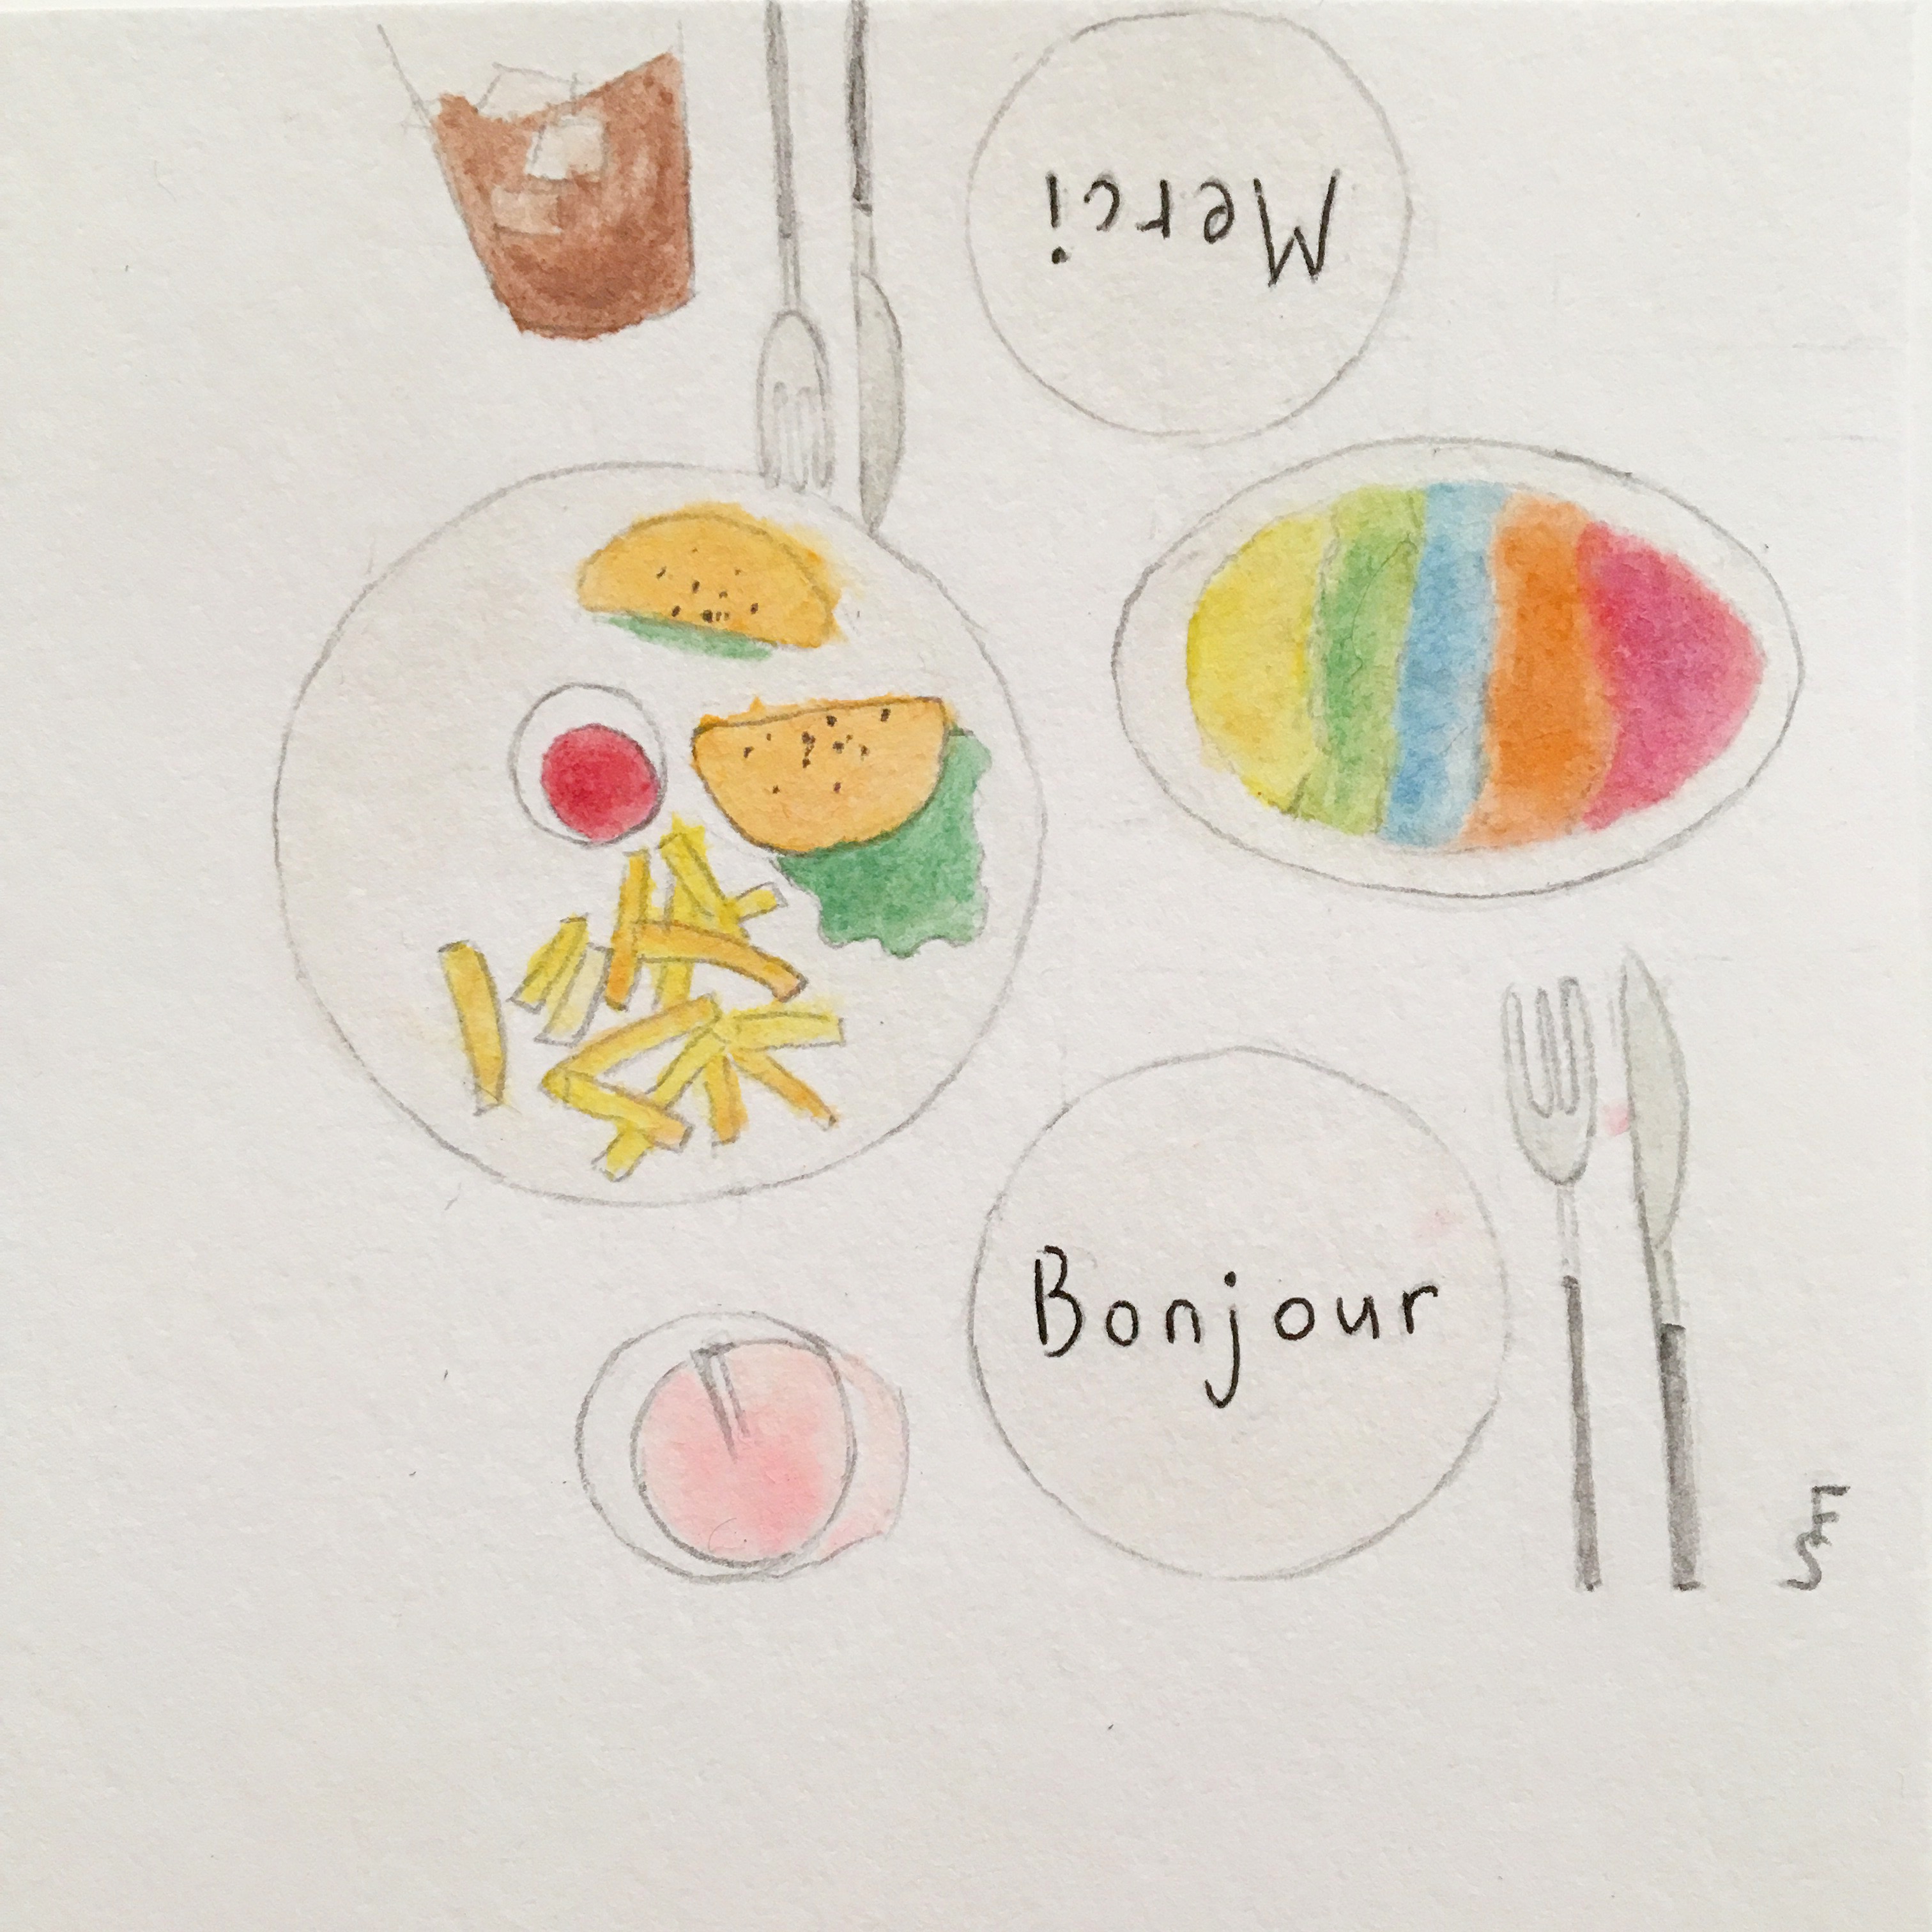 Merci
Bonjour
FS